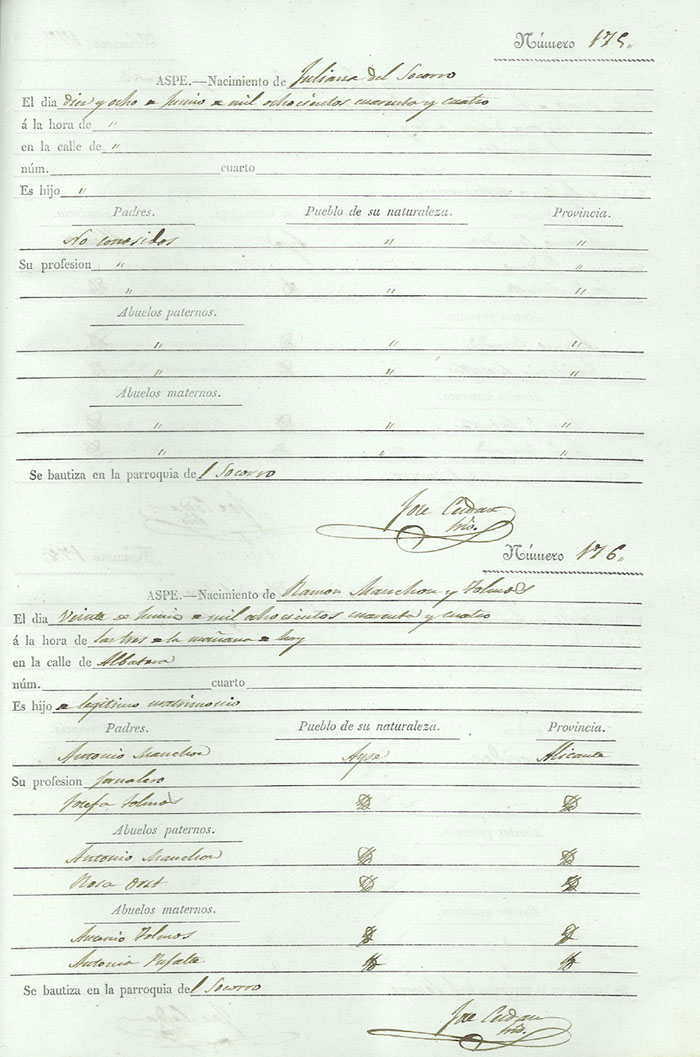 Número 175.
ASPE.—Nacimiento de Juliana del Socorro
El dia diez y ocho de Junio de mil ochocientos cuarenta y cuatro
á la hora de "
en la calle de "
núm. cuarto
Es hijo "
Padres. Pueblo de su naturaleza. Provincia.
No conosidos " "
Su profesion " "
" " "
Abuelos paternos.
" " "
" " "
Abuelos maternos.
" " "
" " "
Se bautiza en la parroquia del Socorro
Jose Cerdan
Número 176.
ASPE.—Nacimiento de Ramon Manchon y Tolmos
El dia veinte de Junio de mil ochocientos cuarenta y cuatro
á la hora de las tres de la mañana de hoy
en la calle de Albatera
núm. cuarto
Es hijo de legitimo matrimonio
Padres. Pueblo de su naturaleza. Provincia.
Antonio Manchon Aspe Alicante
Su profesion Jornalero
Josefa Tolmos
Abuelos paternos.
Antonio Manchon
Rosa
Abuelos maternos.
Tolmos
Antonia
Se bautiza en la parroquia del Socorro
Jose Cerdan